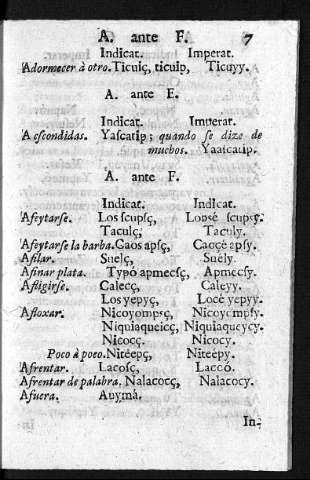 A. ante F. 7
Indicat. Imperat.
Adormecer à otro. Ticulç, ticulp, Ticuyy.
A. ante E.
Indicat. Imperat.
A escondidas. Yascatip; quando se dize de
muchos. Yaascatip.
A. ante F.
Indicat. Indicat.
Afeytarse. Los scupsç, Lopsé scupsy.
Taculç, Taculy.
Afeytarse la barba. Caos apsç, Caoçé apsy.
Afilar. Suelç, Suély.
Afinar plata. Typó apmecsç, Apmecsy.
Afligirse. Calecç, Caleyy.
Los yepyç, Locé yepyy.
Afloxar. Nicoyompsç, Nicoyompsy.
Niquiaqueicç, Niquiaqueycy.
Nicocç. Nicocy.
Poco à poco. Nitéepç, Nitéépy.
Afrentar. Lacosç, Laccó.
Afrentar de palabra. Nalacocç, Nalacocy.
Afuera. Auymá.
In-